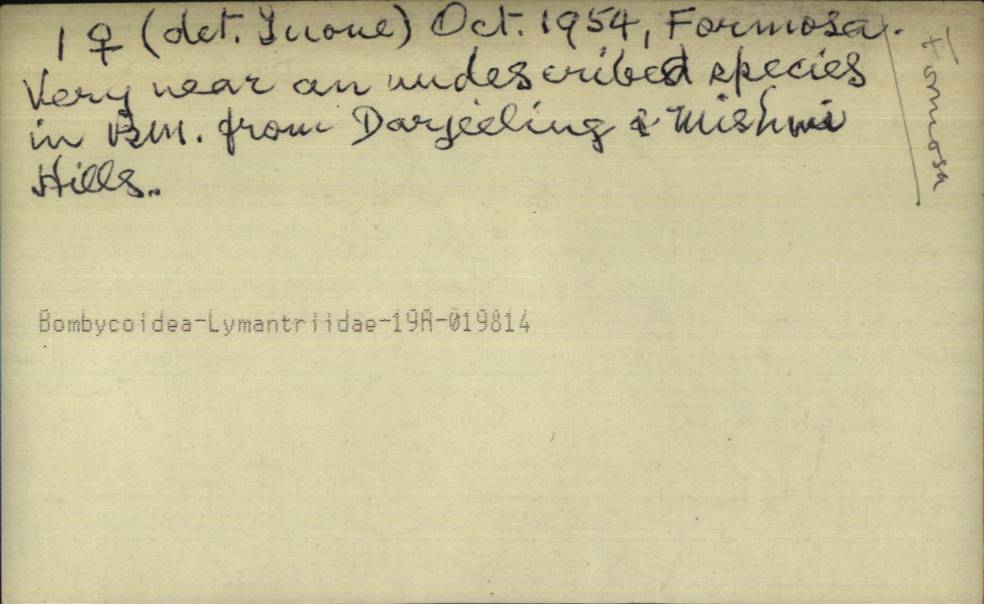 1 ♀ (det. Inoue) Oct. 1954, Formosa.
Very near an undescribed species
in B.M. from Darjeeling & Mishmi
Hills.
Formosa
Bombycoidea-Lymantriidae-19A-019814